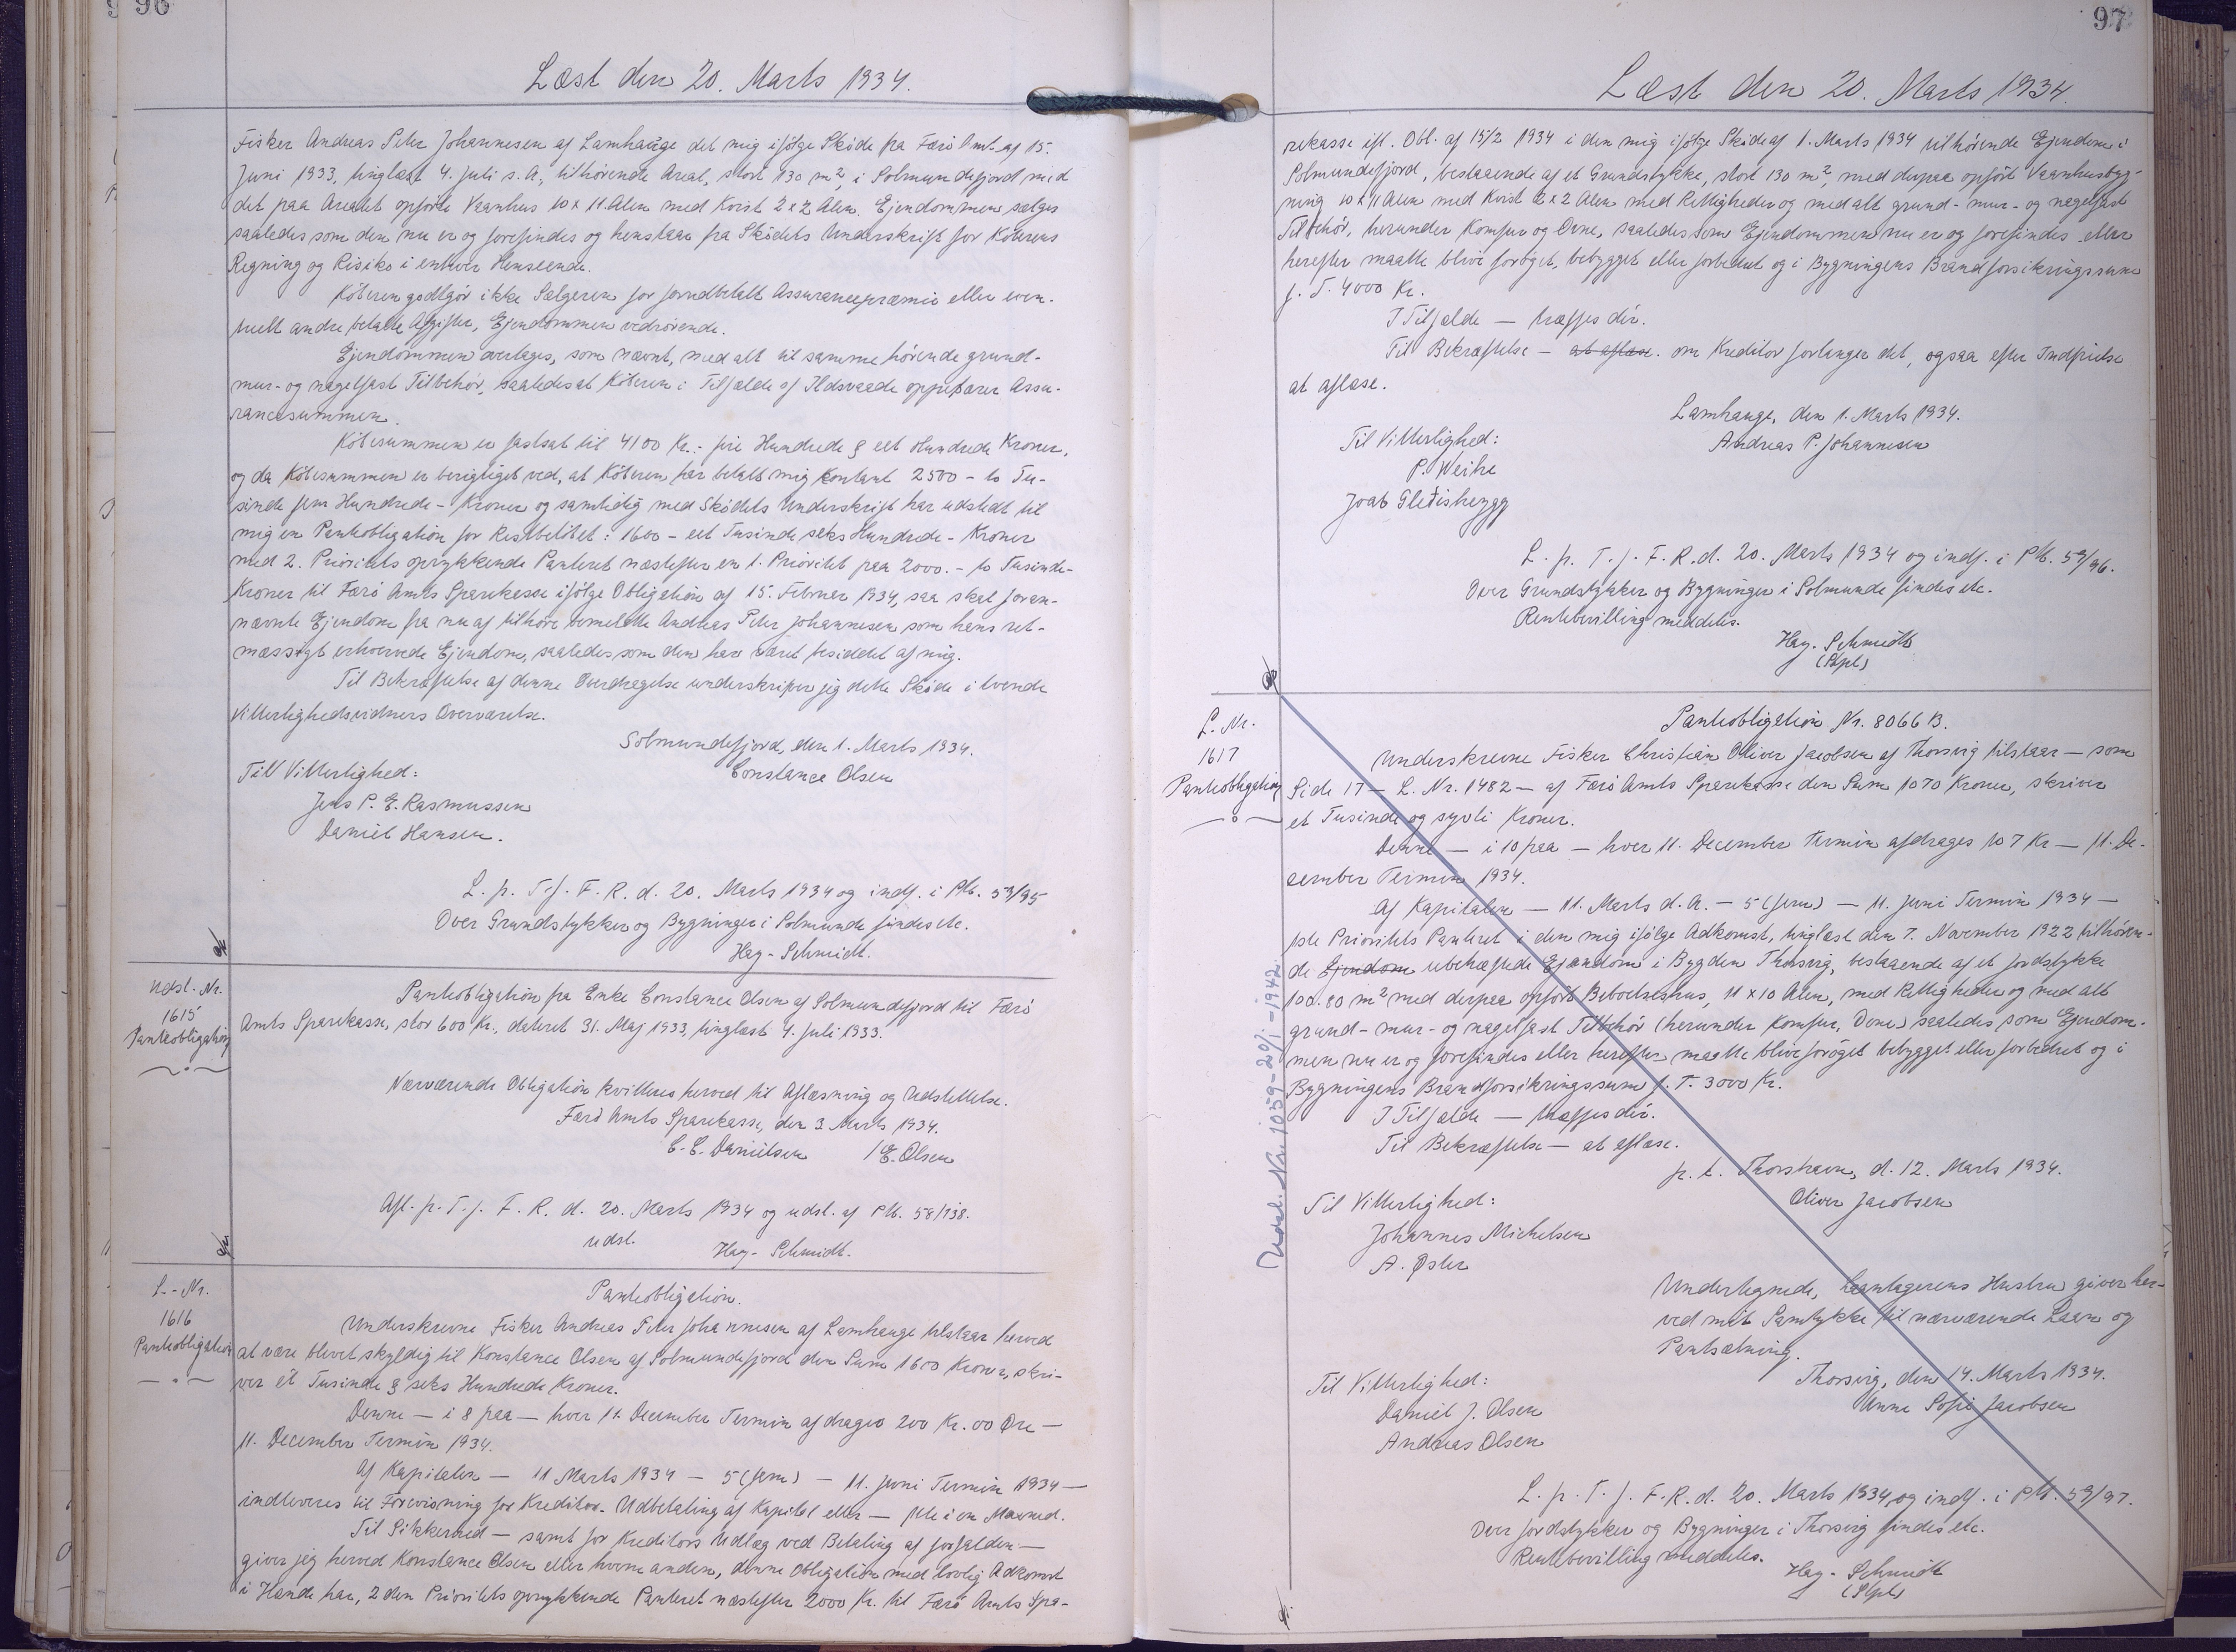 96
Læst den 20. Marts 1934.
Fisker Andreas Peter Johannesen af Lamhauge det mig ifölge Sköde fra Færö Amt af 15.
Juni 1933, tinglæst 4. Juli s. A., tilhörende Areal, stort 130 m², i Solmundefjord med
det paa Arealet opförte Vaanhus 10 x 11 Alen med Kvist 2 x 2 Alen. Ejendommen sælges
saaledes som den nu er og forefindes og henstaar fra Sködets Underskrift for Köberens
Regning og Risiko i enhver Henseende.
Köberen godtgör ikke Sælgeren for forudbetalt Assurancepræmie eller even-
tuelt andre betalte Afgifter, Ejendommen vedrörende.
Ejendommen overtages, som nævnt, med alt til samme hörende grund-
mur- og nagelfast Tilbehör, saaledes at Köberen i Tilfælde af Ildsvaade oppebærer Assu-
rancesummen.
Köbesummen er fastsat til 4100 Kr.: fire Hundrede & eet Hundrede Kroner,
og da Köbesummen er berigtiget ved, at Köberen har betalt mig kontant 2500 - to Tu-
sinde fem Hundrede - Kroner og samtidig med Sködets Underskrift har udstedt til
mig en Pantobligation for Restbelöbet: 1600 - eet Tusinde seks Hundrede - Kroner
med 2. Prioritets oprykkende Panteret næstefter en 1. Prioritet paa 2000.- to Tusinde-
Kroner til Færö Amts Sparekasse ifölge Obligation af 15. Februar 1934, saa skal foran-
nævnte Ejendom fra nu af tilhöre bemeldte Andreas Peter Johannesen som hans ret-
mæssigt erhvervede Ejendom, saaledes som den har været besiddet af mig.
Til Bekræftelse af denne Overdragelse underskriver jeg dette Sköde i tvende
Vitterlighedsvidners Overværelse.
Solmundefjord, den 1. Marts 1934.
Til Vitterlighed: Constance Olsen
Jens P. E. Rasmussen
Daniel Hansen.
L. p. T. f. F. R. d. 20. Marts 1934 og indf. i Ptb. 59/95
Over Grundstykker og Bygninger i Solmunde findes etc.
Hey-Schmidt.
Udsl. Nr.
1615
Pantobligation
Pantobligation fra Enke Constance Olsen af Solmundefjord til Færö
Amts Sparekasse, stor 600 Kr., dateret 31. Maj 1933, tinglæst 4. Juli 1933.
Nærværende Obligation kvitteres herved til Aflæsning og Udslettelse.
Færö Amts Sparekasse, den 3 Marts 1934.
C. C. Danielsen / E. Olsen
Afl. p. T. f. F. R. d. 20. Marts 1934 og udsl. af Ptb. 58/138.
udsl. Hey-Schmidt.
L.-Nr.
1616
Pantobligation
Pantobligation.
Underskrevne Fisker Andreas Peter Johannesen af Lamhauge tilstaar herved
at være blevet skyldig til Konstance Olsen af Solmundefjord den Sum 1600 Kroner, skri-
ver et Tusinde & seks Hundrede Kroner.
Denne — i 8 paa — hver 11. December Termin afdrages 200 Kr. 00 Øre —
11. December Termin 1934.
Af Kapitalen — 11 Marts 1934 — 5 (fem) — 11. Juni Termin 1934 —
indleveres til Forevisning for Kreditor. Udbetaling af Kapital eller — ske i en Maaned.
Til Sikkerhed — samt for Kreditors Udlæg ved Betaling af forfalden —
giver jeg herved Konstance Olsen eller hvem anden, denne Obligation med lovlig Adkomst
i Hænde har, 2den Prioritets oprykkende Panteret næstefter 2000 Kr. til Færö Amts Spa-
97
Læst den 20. Marts 1934.
rekasse ifl. Obl. af 15/2 1934 i den mig ifölge Sköde af 1. Marts 1934 tilhörende Ejendom i
Solmundefjord, bestaaende af et Grundstykke, stort 130 m², med derpaa opfört Vaanhusbyg-
ning 10 x 11 Alen med Kvist 2 x 2 Alen med Rettigheder og med alt grund- mur- og nagelfast
Tilbehör, herunder Komfur og Ovne, saaledes som Ejendommen nu er og forefindes eller
herefter maatte blive foröget, bebygget eller forbedret og i Bygningens Brandforsikringssum
f. T. 4000 Kr.
I Tilfælde — træffes dér.
Til Bekræftelse — at aflæse. om Kreditor forlanger det, ogsaa efter Indfrielse
at aflæse.
Lamhauge, den 1. Marts 1934.
Til Vitterlighed: Andreas P. Johannesen
P. Weihe
Joab Gledisheygg
L. p. T. f. F. R. d. 20. Marts 1934 og indf. i Ptb. 59/96.
Over Grundstykker og Bygninger i Solmunde findes etc.
Rentebevilling meddeles.
Hey-Schmidt
L. Nr.
1617
Pantobligation
Pantobligation Nr. 8066 B.
Underskrevne Fisker Christian Oliver Jacobsen af Thorsvig tilstaar — som
Side 17 — L. Nr. 1482 — af Færö Amts Sparekasse den Sum 1070 Kroner, skriver
et Tusinde og syvti Kroner.
Denne — i 10 paa — hver 11. December Termin afdrages 107 Kr — 11. De-
cember Termin 1934.
Af Kapitalen — 11. Marts d. A. — 5 (fem) — 11. Juni Termin 1934 —
1ste Prioritets Panteret i den mig ifölge Adkomst, tinglæst den 7. November 1922 tilhören-
de Ejendom ubehæftede Ejendom i Bygden Thorsvig, bestaaende af et Jordstykke
100.80 m² med derpaa opfört Beboelseshus, 11 x 10 Alen, med Rettigheder og med alt
grund- mur- og nagelfast Tilbehör (herunder Komfur, Ovne) saaledes som Ejendom-
men nu er og forefindes eller herefter maatte blive foröget bebygget eller forbedret og i
Bygningens Brandforsikringssum f. T. 3000 Kr.
I Tilfælde — træffes dér.
Til Bekræftelse — at aflæse.
p. t. Thorshavn, d. 12. Marts 1934.
Til Vitterlighed: Oliver Jacobsen
Johannes Michelsen
A. Øster
Undertegnede, Laantagerens Hustru giver her-
ved mit Samtykke til nærværende Laan og
Pantsætning.
Til Vitterlighed: Thorsvig, den 14. Marts 1934.
Daniel J. Olsen Unne Sofie Jacobsen
Andreas Olsen
L. p. T. f. F. R. d. 20. Marts 1934 og indf. i Ptb. 59/97.
Over Jordstykker og Bygninger i Thorsvig findes etc.
Rentebevilling meddeles.
Hey-Schmidt
Udsl. Nr. 1059-20/1-1942.